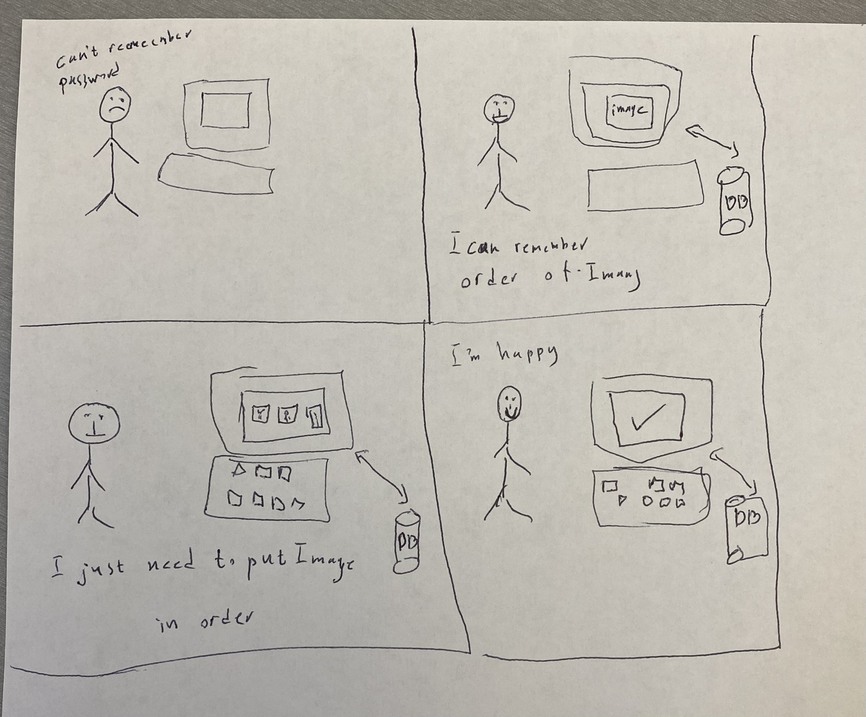 can't remember
password
image
DB
I can remember
order of Imang
DB
I just need to put Image
in order
I'm happy
DB